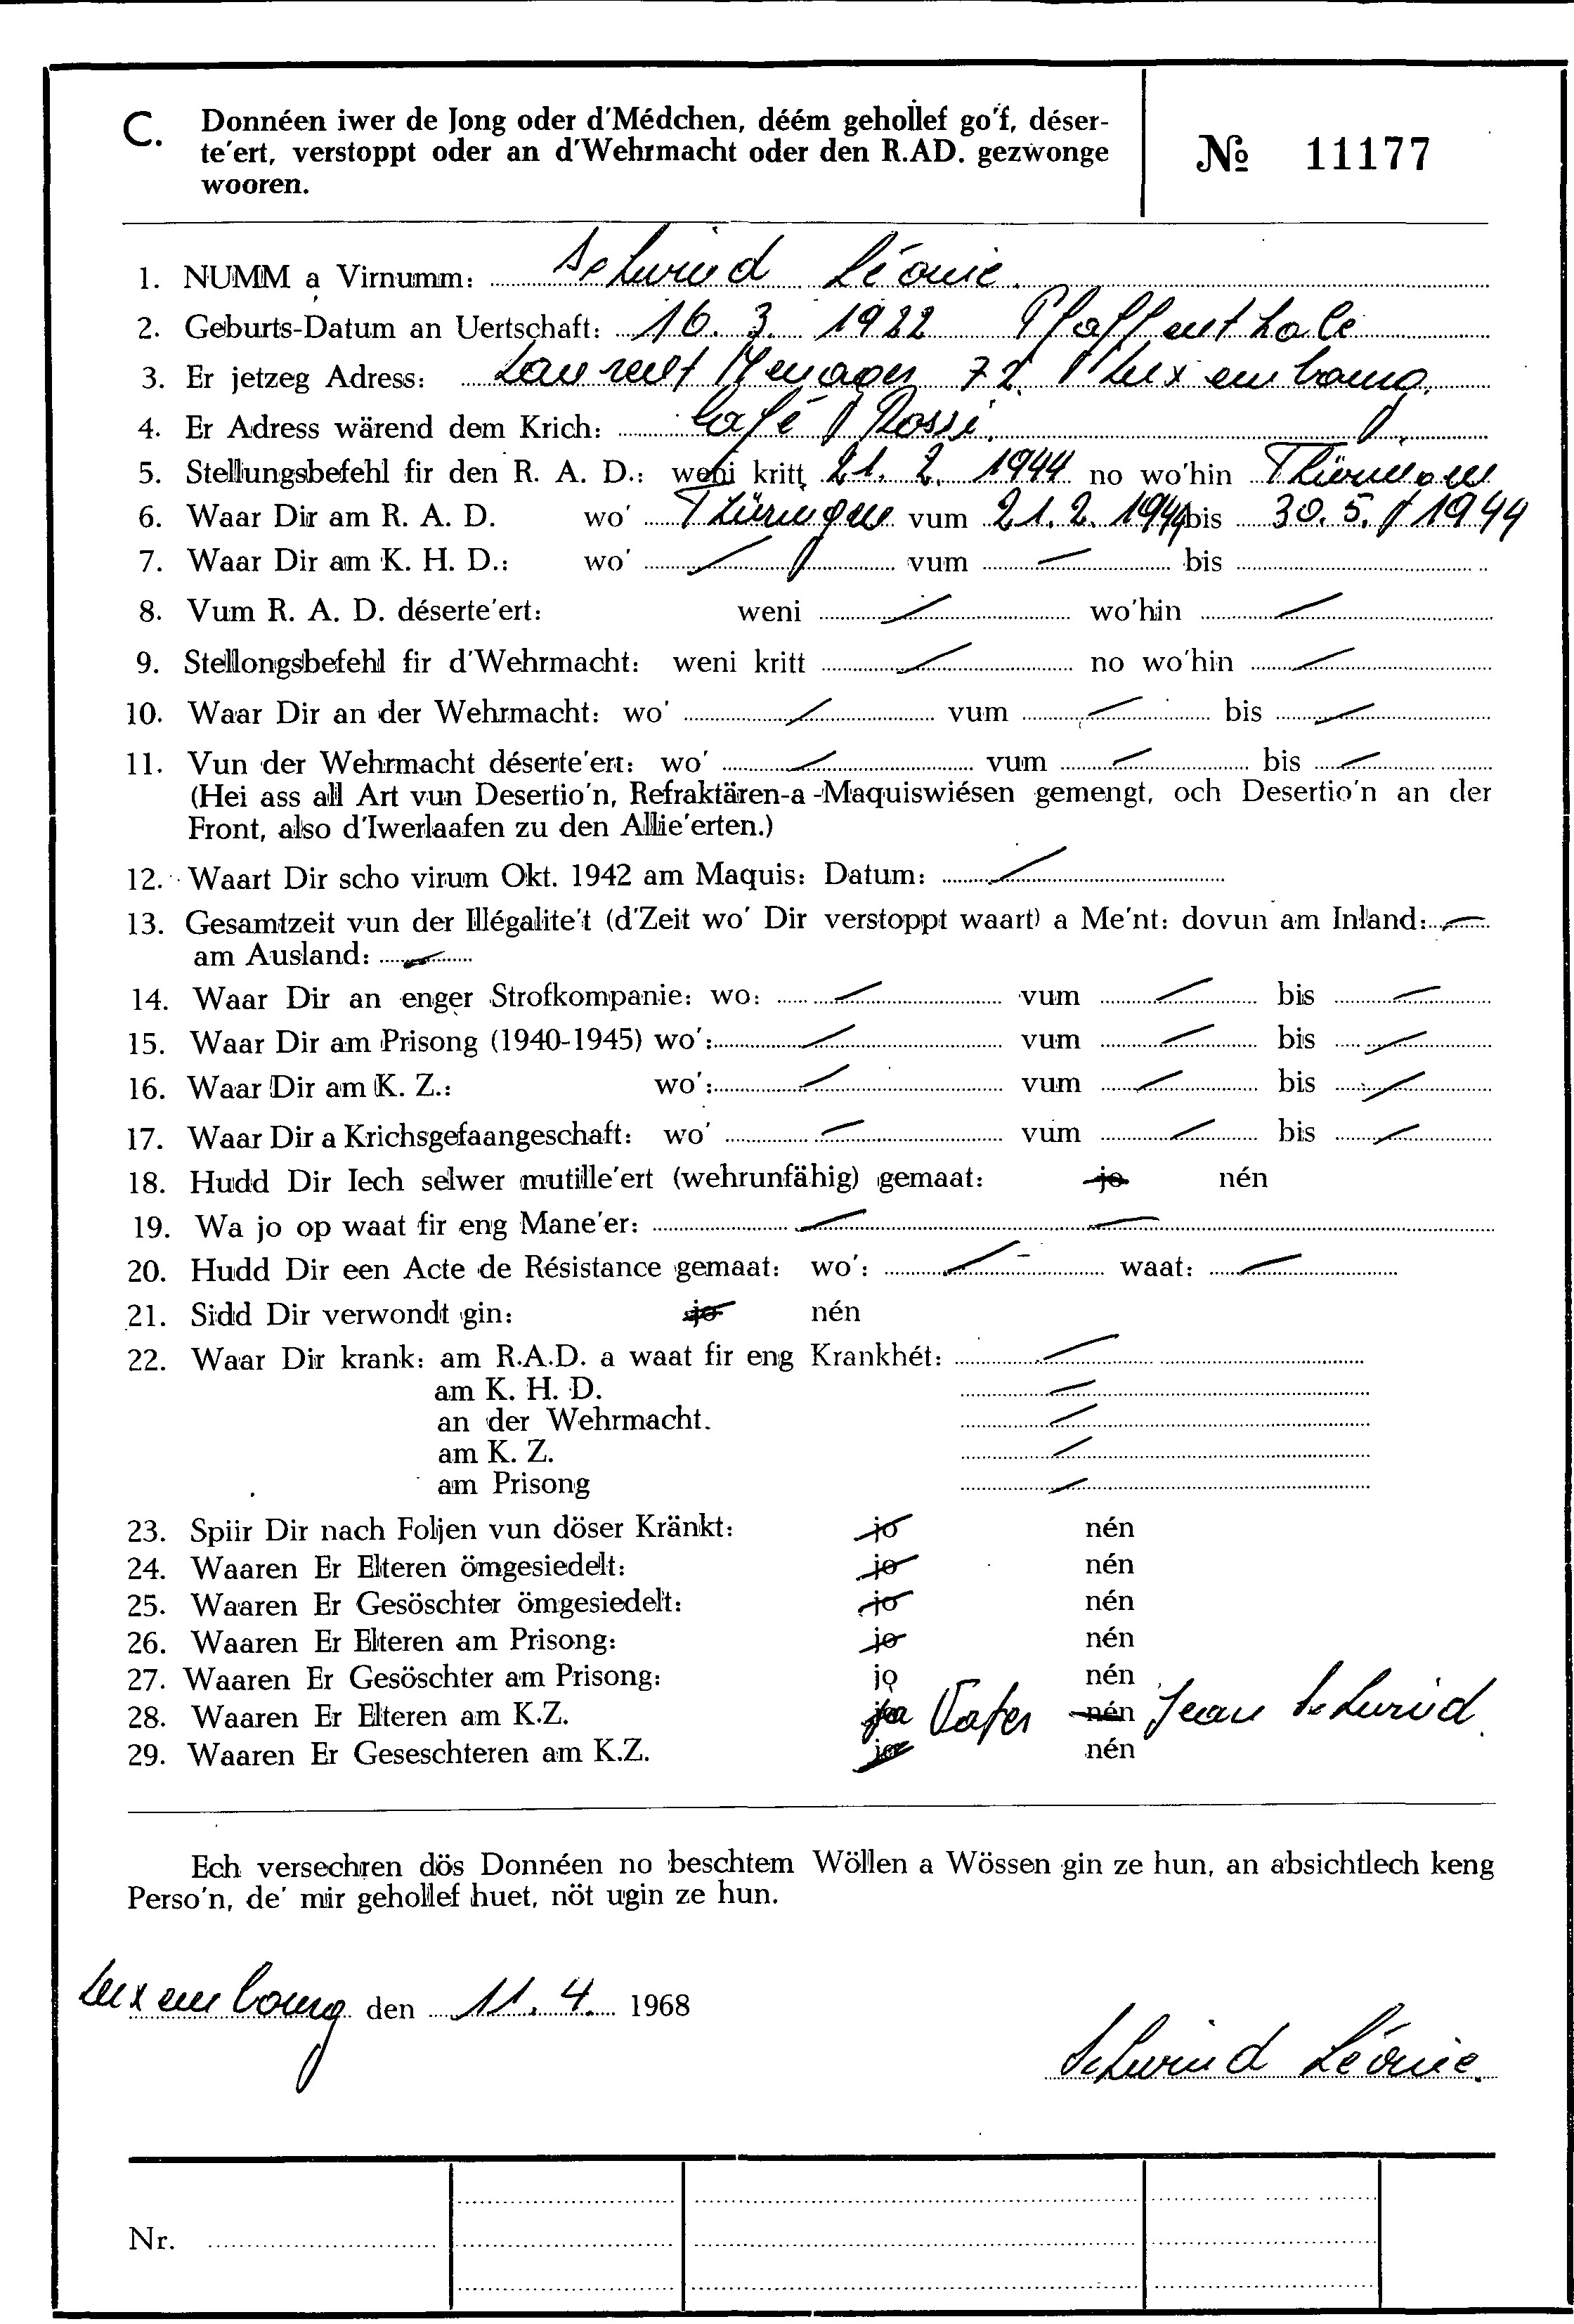 C. Donnéen iwer de Jong oder d'Médchen, déém gehollef go'f, déser-
te'ert, verstoppt oder an d'Wehrmacht oder den R.AD. gezwonge
wooren.
№ 11177
1. NUMM a Virnumm: Schwind Léonie.
2. Geburts-Datum an Uertschaft: 16. 3. 1922 Pfaffenthale
3. Er jetzeg Adress: Laurent Menager 72 Luxembourg.
4. Er Adress wärend dem Krich: Café Rossi.
5. Stellungsbefehl fir den R. A. D.: weni kritt 21. 2. 1944 no wo'hin Thüringen
6. Waar Dir am R. A. D. wo' Thüringen vum 21. 2. 1944 bis 30. 5. 1944
7. Waar Dir am K. H. D.: wo' vum bis
8. Vum R. A. D. déserte'ert: weni wo'hin
9. Stellongsbefehl fir d'Wehrmacht: weni kritt no wo'hin
10. Waar Dir an der Wehrmacht: wo' vum bis
11. Vun der Wehrmacht déserte'ert: wo' vum bis
(Hei ass all Art vun Desertio'n, Refraktären-a-Maquiswiésen gemengt, och Desertio'n an der
Front, also d'Iwerlaafen zu den Allie'erten.)
12. Waart Dir scho virum Okt. 1942 am Maquis: Datum:
13. Gesamtzeit vun der Illégalite't (d'Zeit wo' Dir verstoppt waart) a Me'nt: dovun am Inland:
am Ausland:
14. Waar Dir an enger Strofkompanie: wo: vum bis
15. Waar Dir am Prisong (1940-1945) wo': vum bis
16. Waar Dir am K. Z.: wo': vum bis
17. Waar Dir a Krichsgefaangeschaft: wo' vum bis
18. Hudd Dir Iech selwer mutille'ert (wehrunfähig) gemaat: jo nén
19. Wa jo op waat fir eng Mane'er:
20. Hudd Dir een Acte de Résistance gemaat: wo': waat:
21. Sidd Dir verwondt gin: jo nén
22. Waar Dir krank: am R.A.D. a waat fir eng Krankhét:
am K. H. D.
an der Wehrmacht.
am K. Z.
am Prisong
23. Spiir Dir nach Foljen vun döser Kränkt: jo nén
24. Waaren Er Elteren ömgesiedelt: jo nén
25. Waaren Er Gesöschter ömgesiedelt: jo nén
26. Waaren Er Elteren am Prisong: jo nén
27. Waaren Er Gesöschter am Prisong: jo nén
28. Waaren Er Elteren am K.Z. ja Vater nén Jean Schwind.
29. Waaren Er Geseschteren am K.Z. jo nén
Ech versechren dös Donnéen no beschtem Wöllen a Wössen gin ze hun, an absichtlech keng
Perso'n, de' mir gehollef huet, nöt ugin ze hun.
Luxembourg den 11. 4. 1968
Schwind Léonie.
Nr.